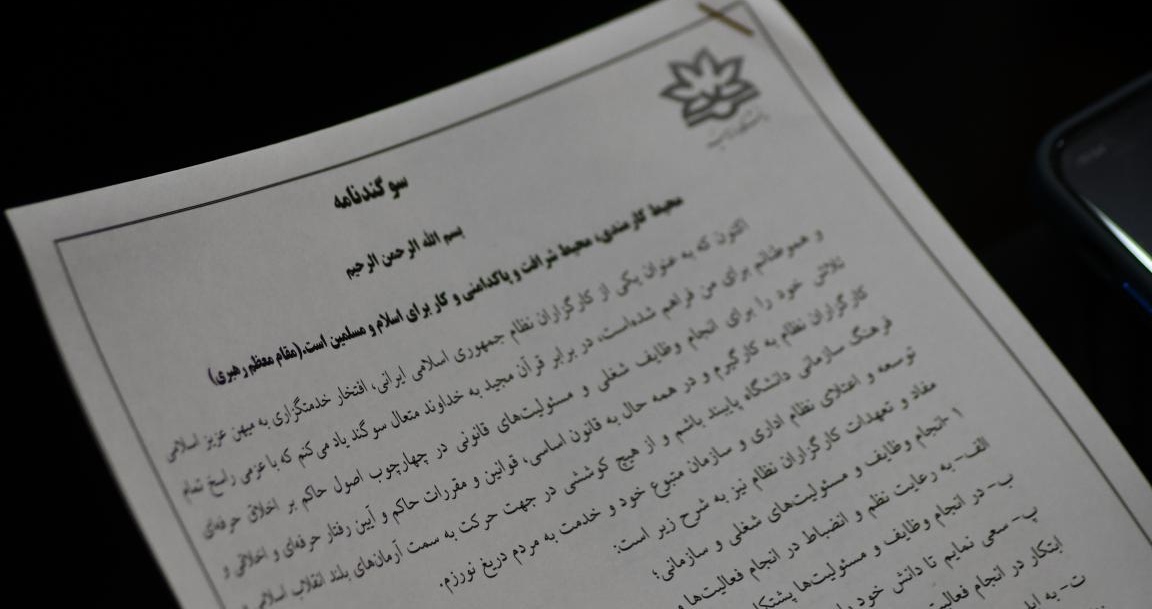 سوگندنامه
بسم الله الرحمن الرحیم
محیط کارمندی، محیط شرافت و پاکدامنی و کار برای اسلام و مسلمین است.(مقام معظم رهبری)
اکنون که به عنوان یکی از کارگزاران نظام جمهوری اسلامی ایرانی، افتخار خدمتگزاری به میهن عزیز اسلامی
و هموطنانم برای من فراهم شده‌است، در برابر قرآن مجید به خداوند متعال سوگند یاد می‌کنم که با عزمی راسخ تمام
تلاش خود را برای انجام وظایف شغلی و مسئولیت‌های قانونی در چهارچوب اصول حاکم بر اخلاق حرفه‌ای
کارگزاران نظام به کارگیرم و در همه حال به قانون اساسی، قوانین و مقررات حاکم و آیین رفتار حرفه‌ای و اخلاقی و
فرهنگ سازمانی دانشگاه پایبند باشم و از هیچ کوششی در جهت حرکت به سمت آرمان‌های بلند انقلاب اسلامی
توسعه و اعتلای نظام اداری و سازمان متبوع خود و خدمت به مردم دریغ نورزم.
مفاد و تعهدات کارگزاران نظام نیز به شرح زیر است:
۱-انجام وظایف و مسئولیت‌های شغلی و سازمانی؛
الف- به رعایت نظم و انضباط در انجام فعالیت‌ها و
ب- در انجام وظایف و مسئولیت‌ها
پ- سعی نمایم تا دانش خود
ابتکار در انجام
ت- به